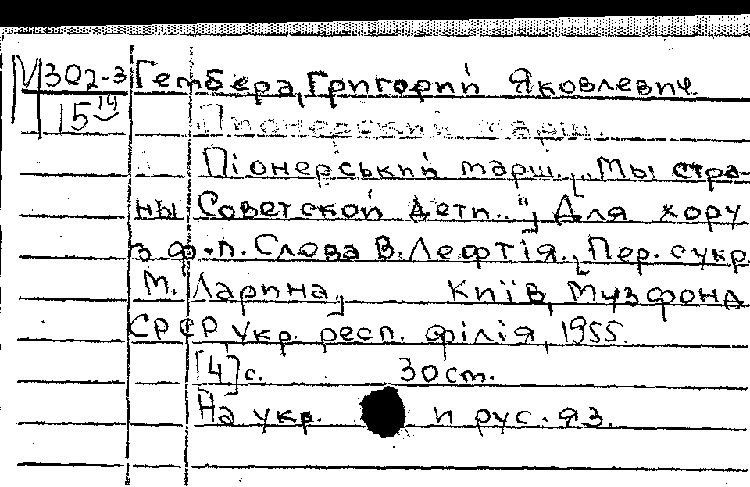 М302-3 Гембера, Григорий Яковлевич.
15 19
Пионерский марш.
Піонерський марш. [„Мы стра-
ны Советской дети.."] Для хору
з ф-п. Слова В. Лефтія. [Пер. с укр.
М. Ларина] Київ, Музфонд
СРСР, Укр. респ. філія, 1955.
[4] с. 30 см.
На укр. и рус. яз.